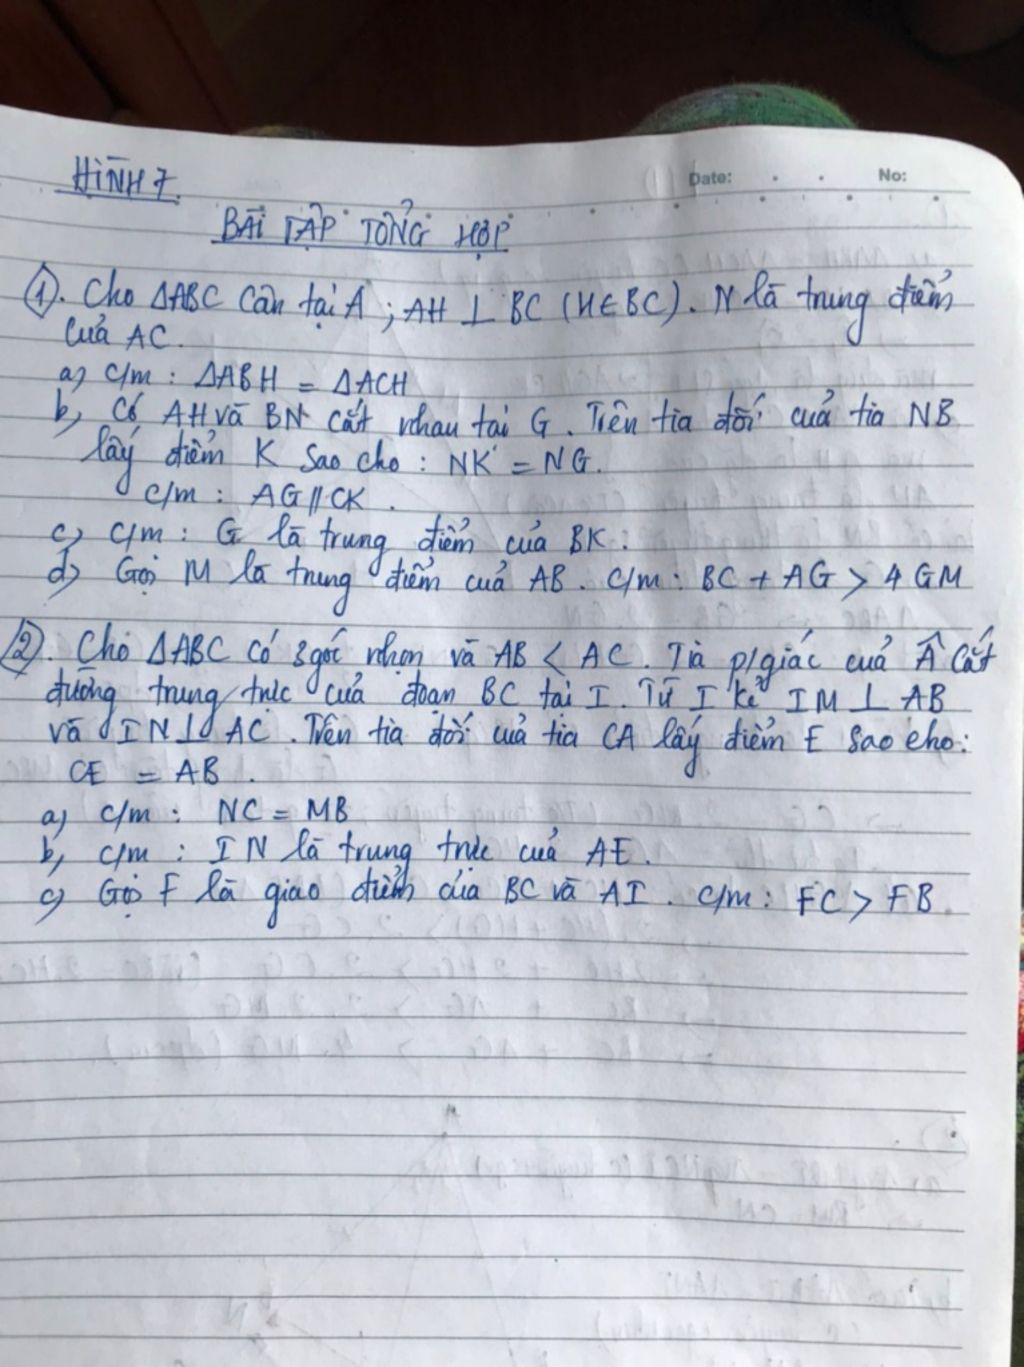 HÌNH 7.
Date: No:
BÀI TẬP TỔNG HỢP
①. Cho ΔABC cân tại A ; AH ⊥ BC (H∈BC). N là trung điểm
của AC.
a) c/m : ΔABH = ΔACH
b, Có AH và BN cắt nhau tại G. Trên tia đối của tia NB
lấy điểm K sao cho : NK = NG.
c/m : AG // CK .
c) c/m : G là trung điểm của BK.
d) Gọi M là trung điểm của AB. c/m : BC + AG > 4 GM
②. Cho ΔABC có 3 góc nhọn và AB < AC. Tia p/giác của Â cắt
đường trung trực của đoạn BC tại I. Từ I kẻ IM ⊥ AB
và IN ⊥ AC. Trên tia đối của tia CA lấy điểm E sao cho:
CE = AB .
a) c/m : NC = MB
b, c/m : IN là trung trực của AE.
c) Gọi F là giao điểm của BC và AI. c/m : FC > FB.